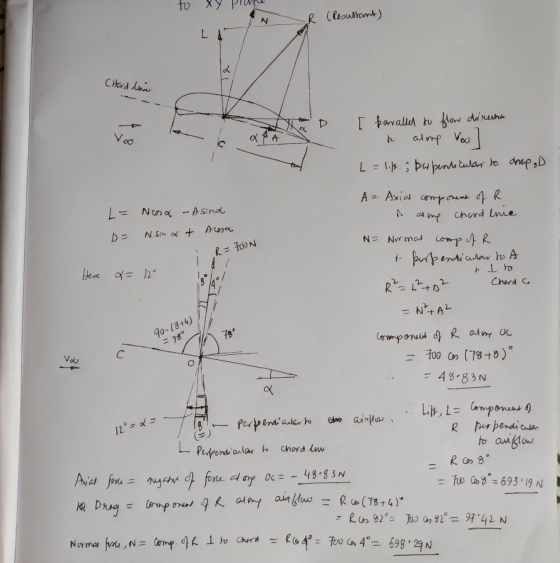 to xy plane
L
N
R (Resultant)
α
Chord line
V∞
C
α
A
α
D
[ parallel to flow direction
is along V∞ ]
L = lift ; perpendicular to drag, D
A = Axial component of R
is along chord line
N = Normal comp of R
is perpendicular to A
is ⊥ to
chord C
R² = L² + D²
= N² + A²
L = N cosα - A sinα
D = N sin α + A cosα
Here α = 12°
R = 700N
8°
4°
90-(8+4)
= 78°
78°
C
O
V∞
α
12° = α =
8°
Perpendicular to airflow.
Perpendicular to chord line
component of R along oc
= 700 cos (78+8)°
∴ = 48.83 N
∴ Lift, L = component of
R perpendicular
to airflow
= R cos 8°
= 700 cos 8° = 693.19 N
Axial force = negative of force along oc = - 48.83 N
Drag = component of R along airflow = R cos (78+4)°
= R cos 82° = 700 cos 82° = 97.42 N
Normal force, N = comp. of R ⊥ to chord = R cos 4° = 700 cos 4° = 698.29 N